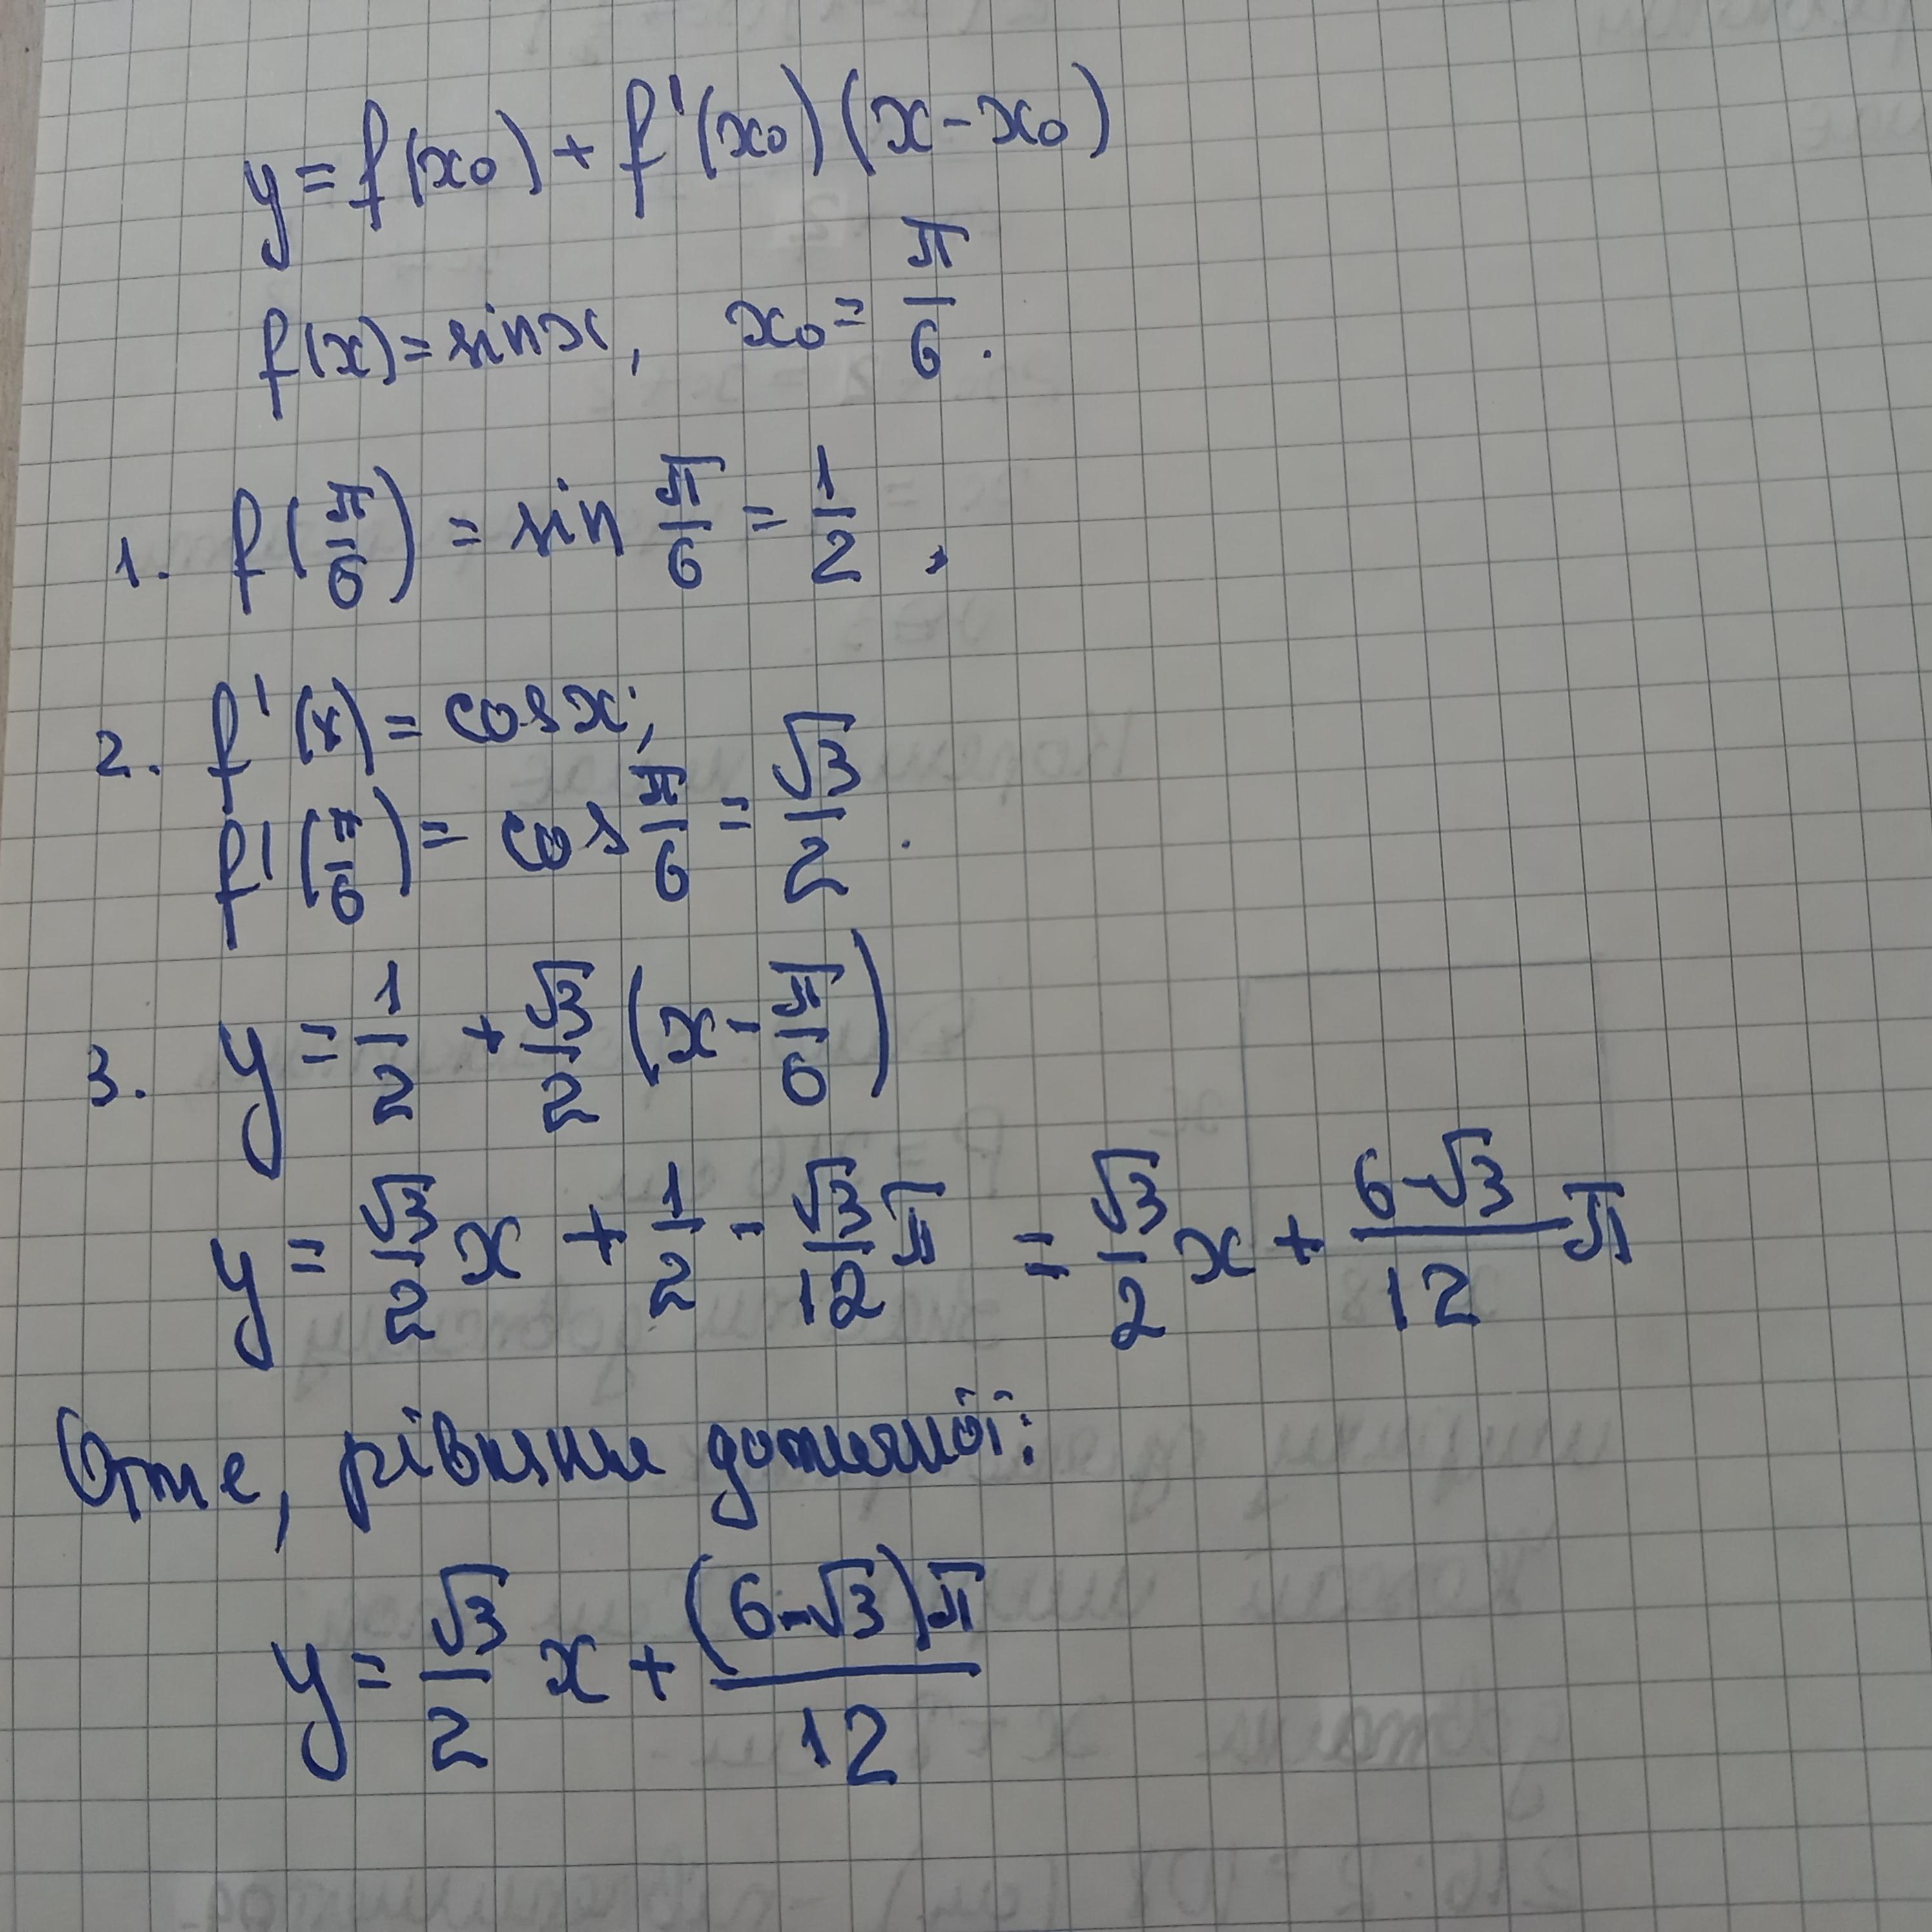 y = f(x₀) + f'(x₀)(x - x₀)
f(x) = sin x, x₀ = π/6.
1. f(π/6) = sin π/6 = 1/2,
2. f'(x) = cos x;
f'(π/6) = cos π/6 = √3/2.
3. y = 1/2 + √3/2 (x - π/6)
y = √3/2 x + 1/2 - √3/12 π = √3/2 x + 6-√3/12 π
Отже, рівняння дотичної:
y = √3/2 x + (6-√3)π/12